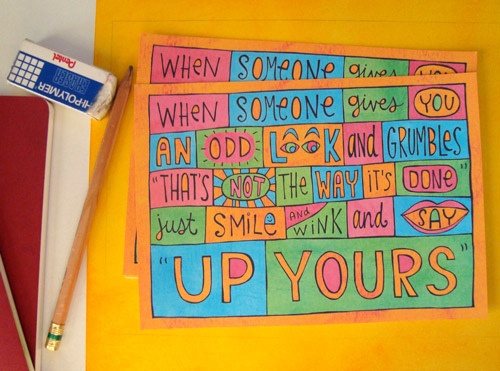 WHEN SOMEONE gives
WHEN SOMEONE gives YOU
AN ODD LOOK and GRUMBLES
"THAT'S NOT THE WAY it's DONE"
just SMILE AND WINK and SAY
"UP YOURS"
Pentel
HI-POLYMER
ERASER